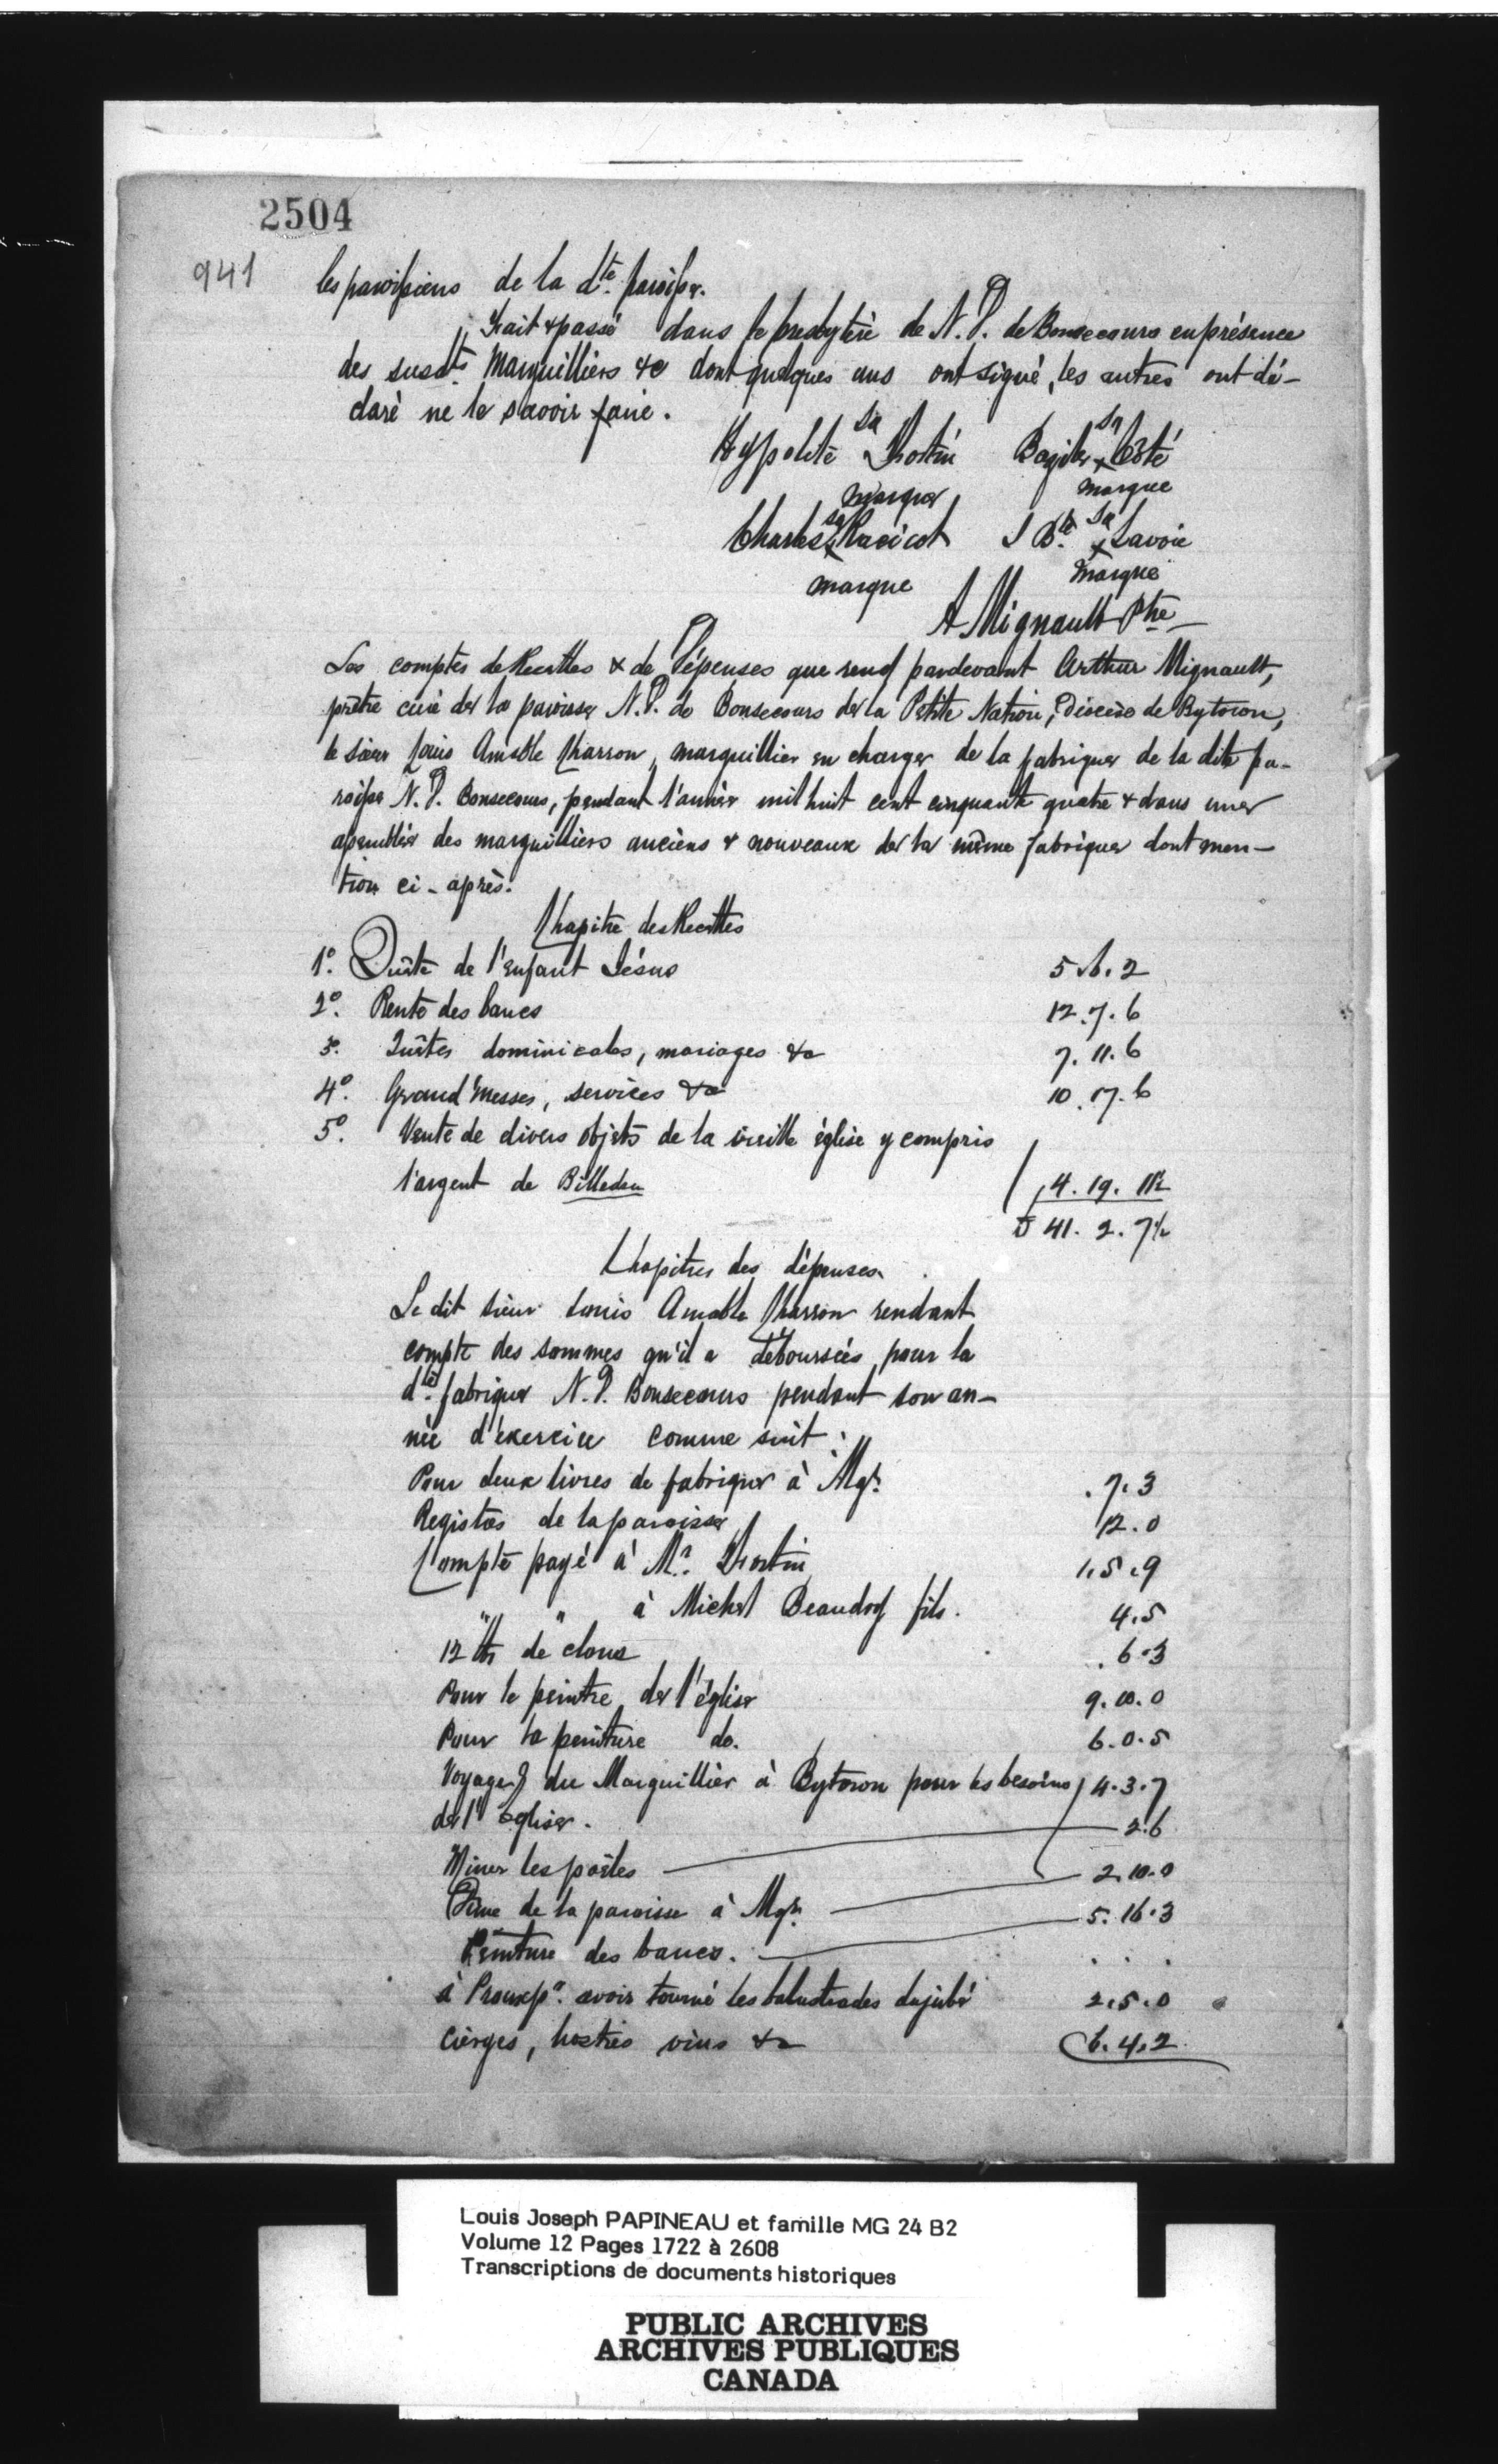 2504
941
les paroissiens de la dte. paroisse.
Fait & passé dans le presbytère de N. D. de Bonsecours en présence
des susdts. Marguilliers &c dont quelques uns ont signé, les autres ont dé-
claré ne le savoir faire.
Hypolite sa Fortin Bazile sa x Côté
marque marque
Charles sa x Racicot J Bte. sa x Lavoie
marque marque
A Mignault Ptre
Les comptes de Recettes & de Dépenses que rend pardevant Arthur Mignault,
prêtre curé de la paroisse N. D. de Bonsecours de la Petite Nation, Diocèse de Bytown,
le sieur Louis Amable Charron, marguillier en charge de la fabrique de la dite pa-
roisse N. D. Bonsecours, pendant l'année mil huit cent cinquante quatre & dans une
assemblée des marguilliers anciens & nouveaux de la même fabrique dont men-
tion ci-après.
Chapitre des Recettes
1º. Quête de l'enfant Jésus 5.6.2
2º. Rente des bancs 12.7.6
3º. Quêtes dominicales, mariages &a 7.11.6
4º. Grand'Messes, services &a 10.17.6
5º. Vente de divers objets de la vieille église y compris
l'argent de Billedeau 4.19.11½
41.2.7½
Chapitres des dépenses.
Le dit sieur Louis Amable Charron rendant
compte des sommes qu'il a déboursées pour la
dte. fabrique N. D. Bonsecours pendant son an-
née d'exercice comme suit :
Pour deux livres de fabrique à Mgr. .7.3
Registres de la paroisse 12.0
Compte payé à Mr. Fortin 1.5.9
" " à Michel Beaudry fils. 4.5
12 lbs de clous .6.3
Pour le peintre de l'église 9.10.0
Pour la peinture do. 6.0.5
Voyages du Marguillier à Bytown pour les besoins 4.3.7
de l'Eglise. 2.6
Miner les poëles 2.10.0
Dime de la paroisse à Mgr. 5.16.3
Peinture des bancs. . . .
à Proulx pr. avoir tourné les balustrades du jubé 2.5.0
Cierges, hosties vins &a 6.4.2
Louis Joseph PAPINEAU et famille MG 24 B2
Volume 12 Pages 1722 à 2608
Transcriptions de documents historiques
PUBLIC ARCHIVES
ARCHIVES PUBLIQUES
CANADA